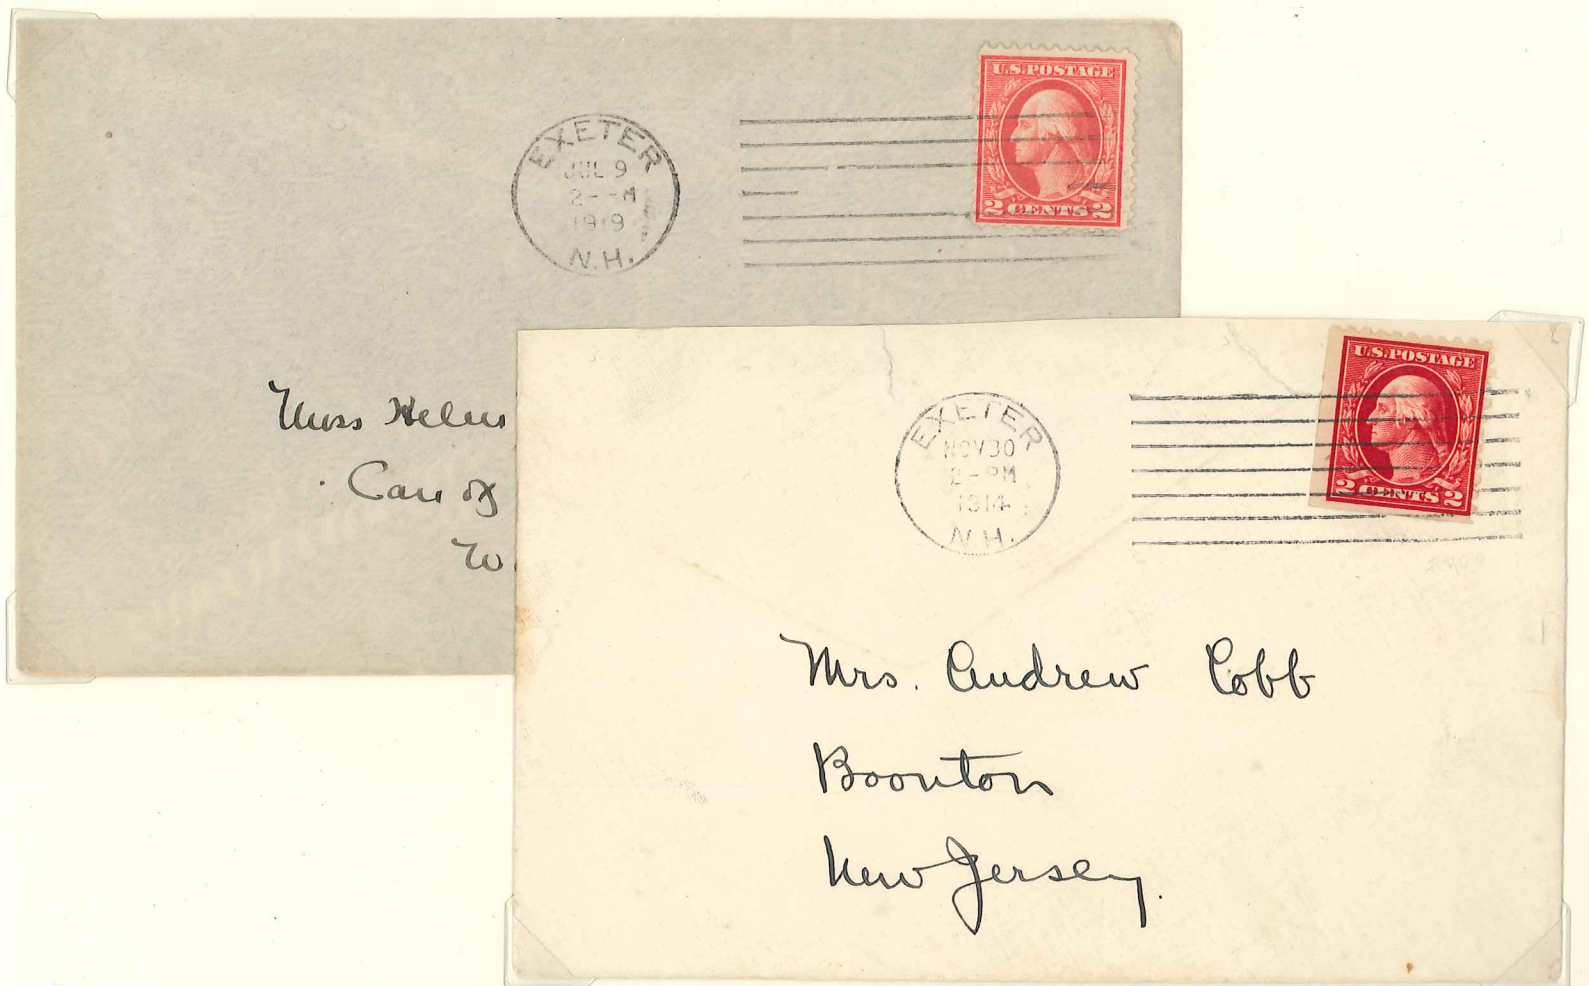 U.S. POSTAGE
2 CENTS 2
EXETER
JUL 9
2-PM
1919
N.H.
Miss Helen
Care of
W.
U.S. POSTAGE
2 CENTS 2
EXETER
NOV 30
2-PM
1914
N.H.
Mrs. Andrew Cobb
Boonton
New Jersey.